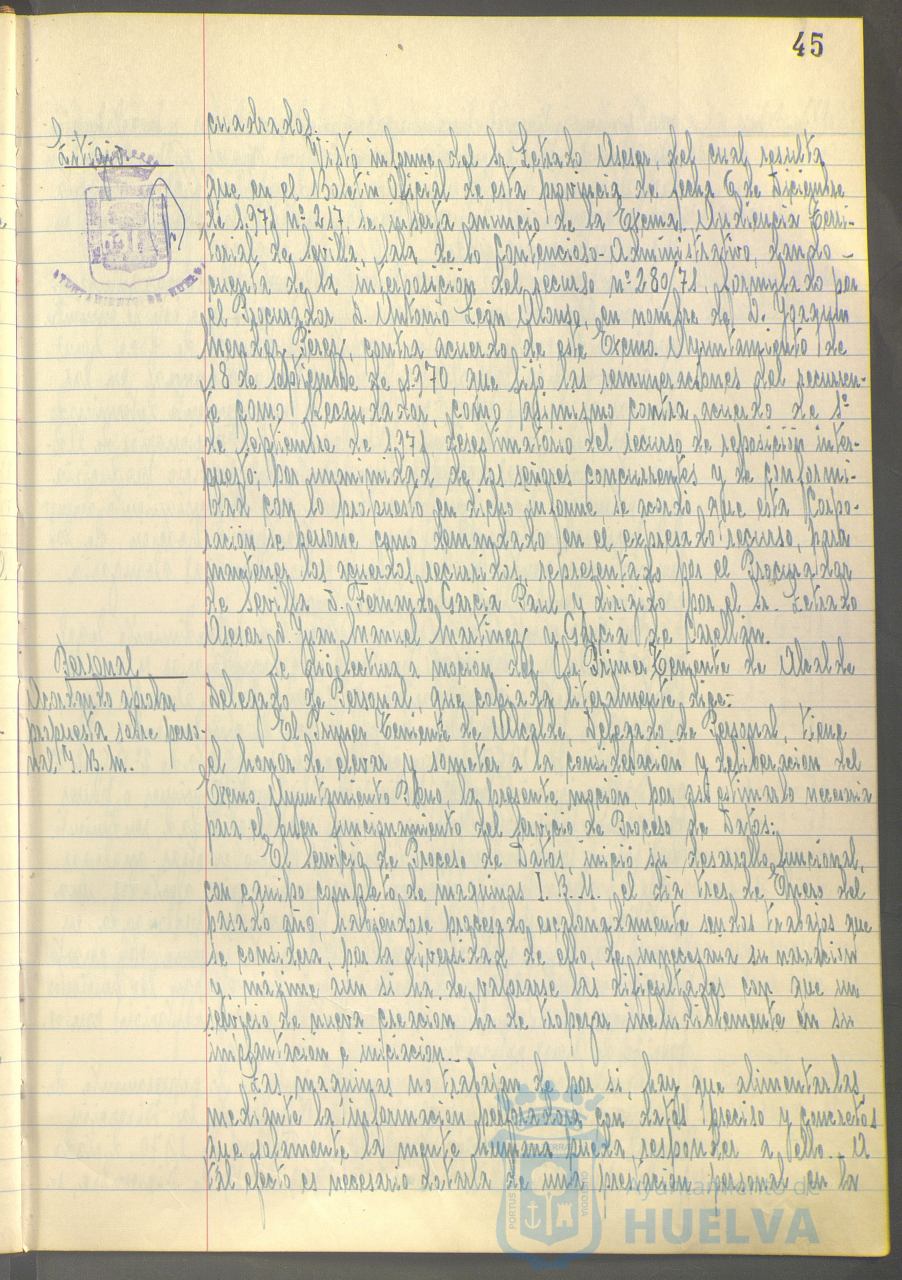 45
cuadrados.
Litigio
Visto informe del Sr. Letrado Asesor, del cual resulta
que en el Boletín Oficial de esta provincia de fecha 6 de Diciembre
de 1.971 nº 217, se inserta anuncio de la Excma. Audiencia Terri-
torial de Sevilla, Sala de lo Contencioso-Administrativo, dando
cuenta de la interposición del recurso nº 280/71, formulado por
el Procurador D. Antonio León Alonso, en nombre de D. Joaquín
Mendez Perez, contra acuerdo de este Excmo. Ayuntamiento de
18 de Septiembre de 1.970, que fijó las remuneraciones del recurren-
te como Recaudador, como asimismo contra acuerdo de 1º
de Septiembre de 1.971 desestimatorio del recurso de reposición inter-
puesto; por unanimidad de los señores concurrentes y de conformi-
dad con lo propuesto en dicho informe se acordó que esta Corpo-
ración se persone como demandado en el expresado recurso, para
mantener los acuerdos recurridos, representado por el Procurador
de Sevilla D. Fernando García Paul y dirigido por el Sr. Letrado
Asesor D. Juan Manuel Martinez y García de
AYUNTAMIENTO DE HUELVA
Personal
Acordando aprobar
propuesta sobre perso-
nal I. B. M.
Se dió lectura a moción del Sr. Primer Teniente de Alcalde
Delegado de Personal, que copiada literalmente dice:
El Primer Teniente de Alcalde Delegado de Personal, tiene
el honor de elevar y someter a la consideración y deliberación del
Excmo. Ayuntamiento Pleno, la presente moción, por así estimarlo necesario
para el buen funcionamiento del Servicio de Proceso de Datos:
El Servicio de Proceso de Datos, inició su desarrollo funcional,
con equipo completo de maquinas I. B. M. el dia tres de Enero del
pasado año, habiendose procesado escalonadamente sendos trabajos que
se considera, por la diversidad de ello, de innecesaria su narración
y máxime aún si ha de valorarse las dificultades con que un
servicio de nueva creación ha de tropezar ineludiblemente en su
implantación e iniciación.-
Las maquinas no trabajan de por si, hay que alimentarlas
mediante la información perforadora con datos preciso y concretos
que solamente la mente humana pueda responder a ello. A
tal efecto es necesario dotarla de una prestación personal en la
Ayuntamiento de
HUELVA